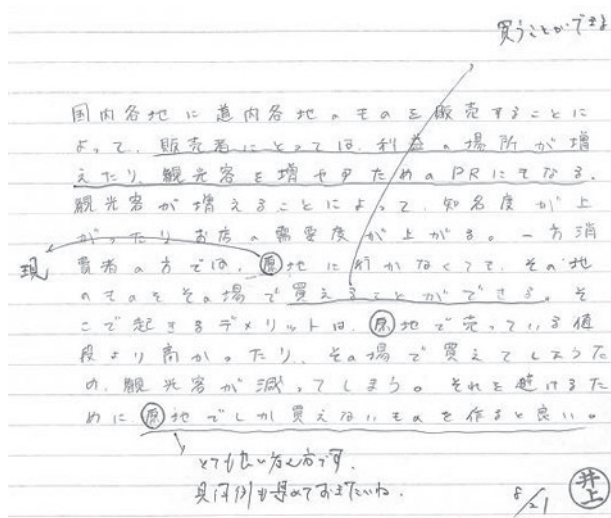 買うことができる
国内各地に道内各地のものを販売することに
よって、販売者にとっては、利益の場所が増
えたり、観光客を増やすためのPRにもなる。
観光客が増えることによって、知名度が上
がったりお店の需要度が上がる。一方消
現
費者の方では、原地に行かなくても、その地
のものをその場で買えることができる。そ
こで起きるデメリットは、原地で売っている値
段より高かったり、その場で買えてしまうた
め、観光客が減ってしまう。それを避けるた
めに原地でしか買えないものを作ると良い。
とても良い考え方です。
具体例も集めておきたいね。
8/21
井上